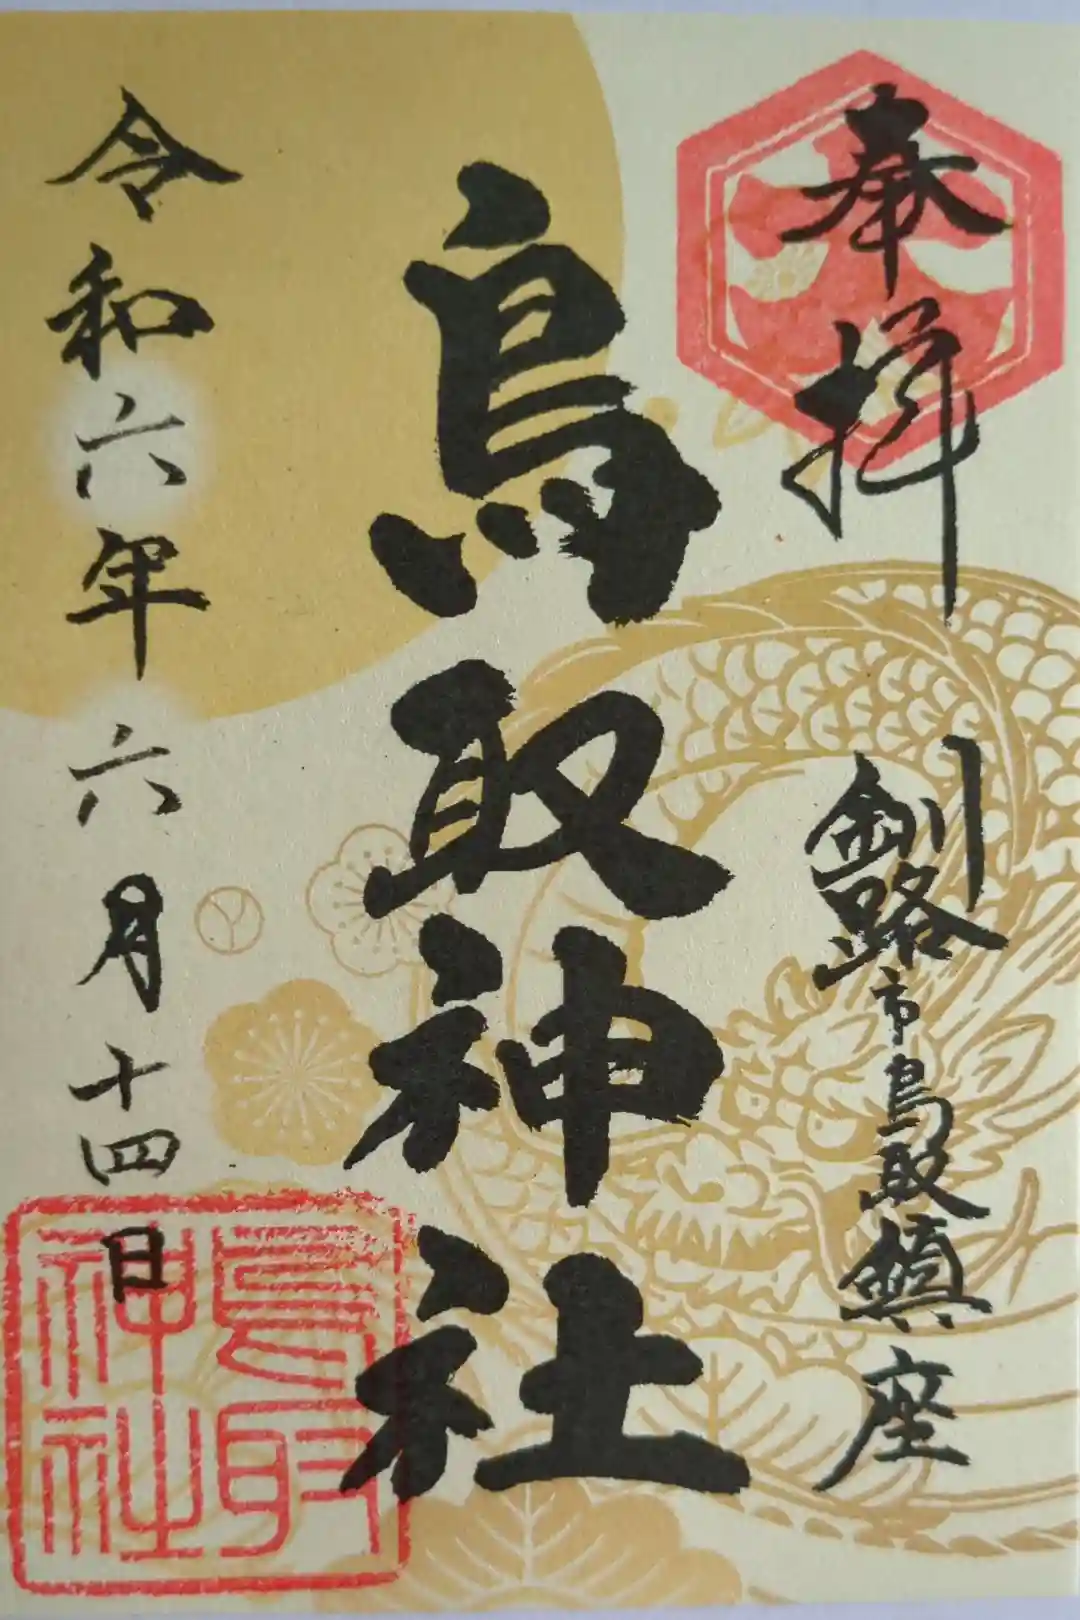 奉拝
釧路市鳥取鎮座
鳥取神社
令和六年六月十四日
鳥取
神社